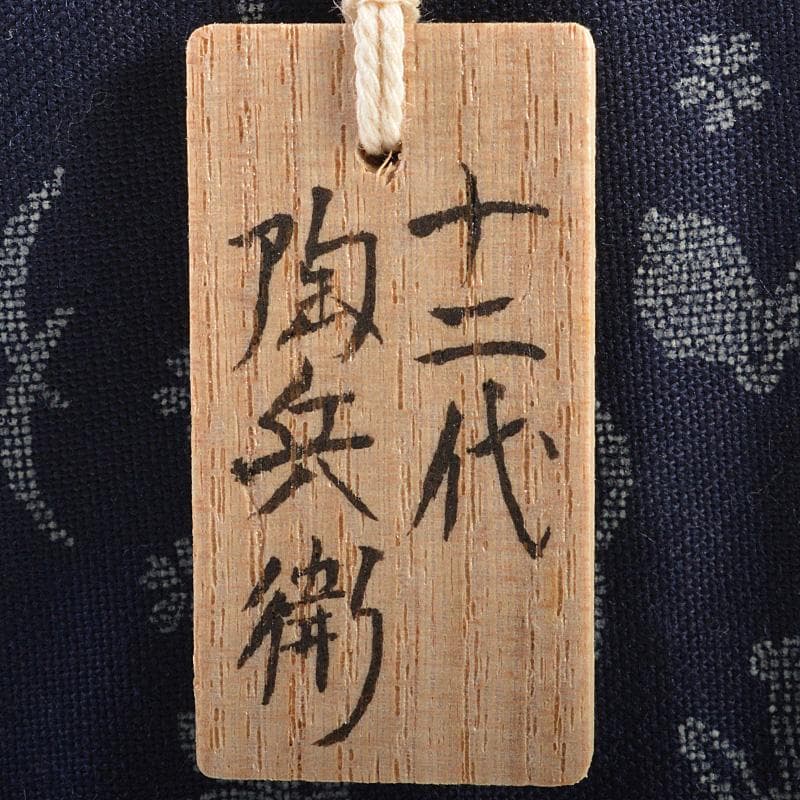 十二代
陶兵衛